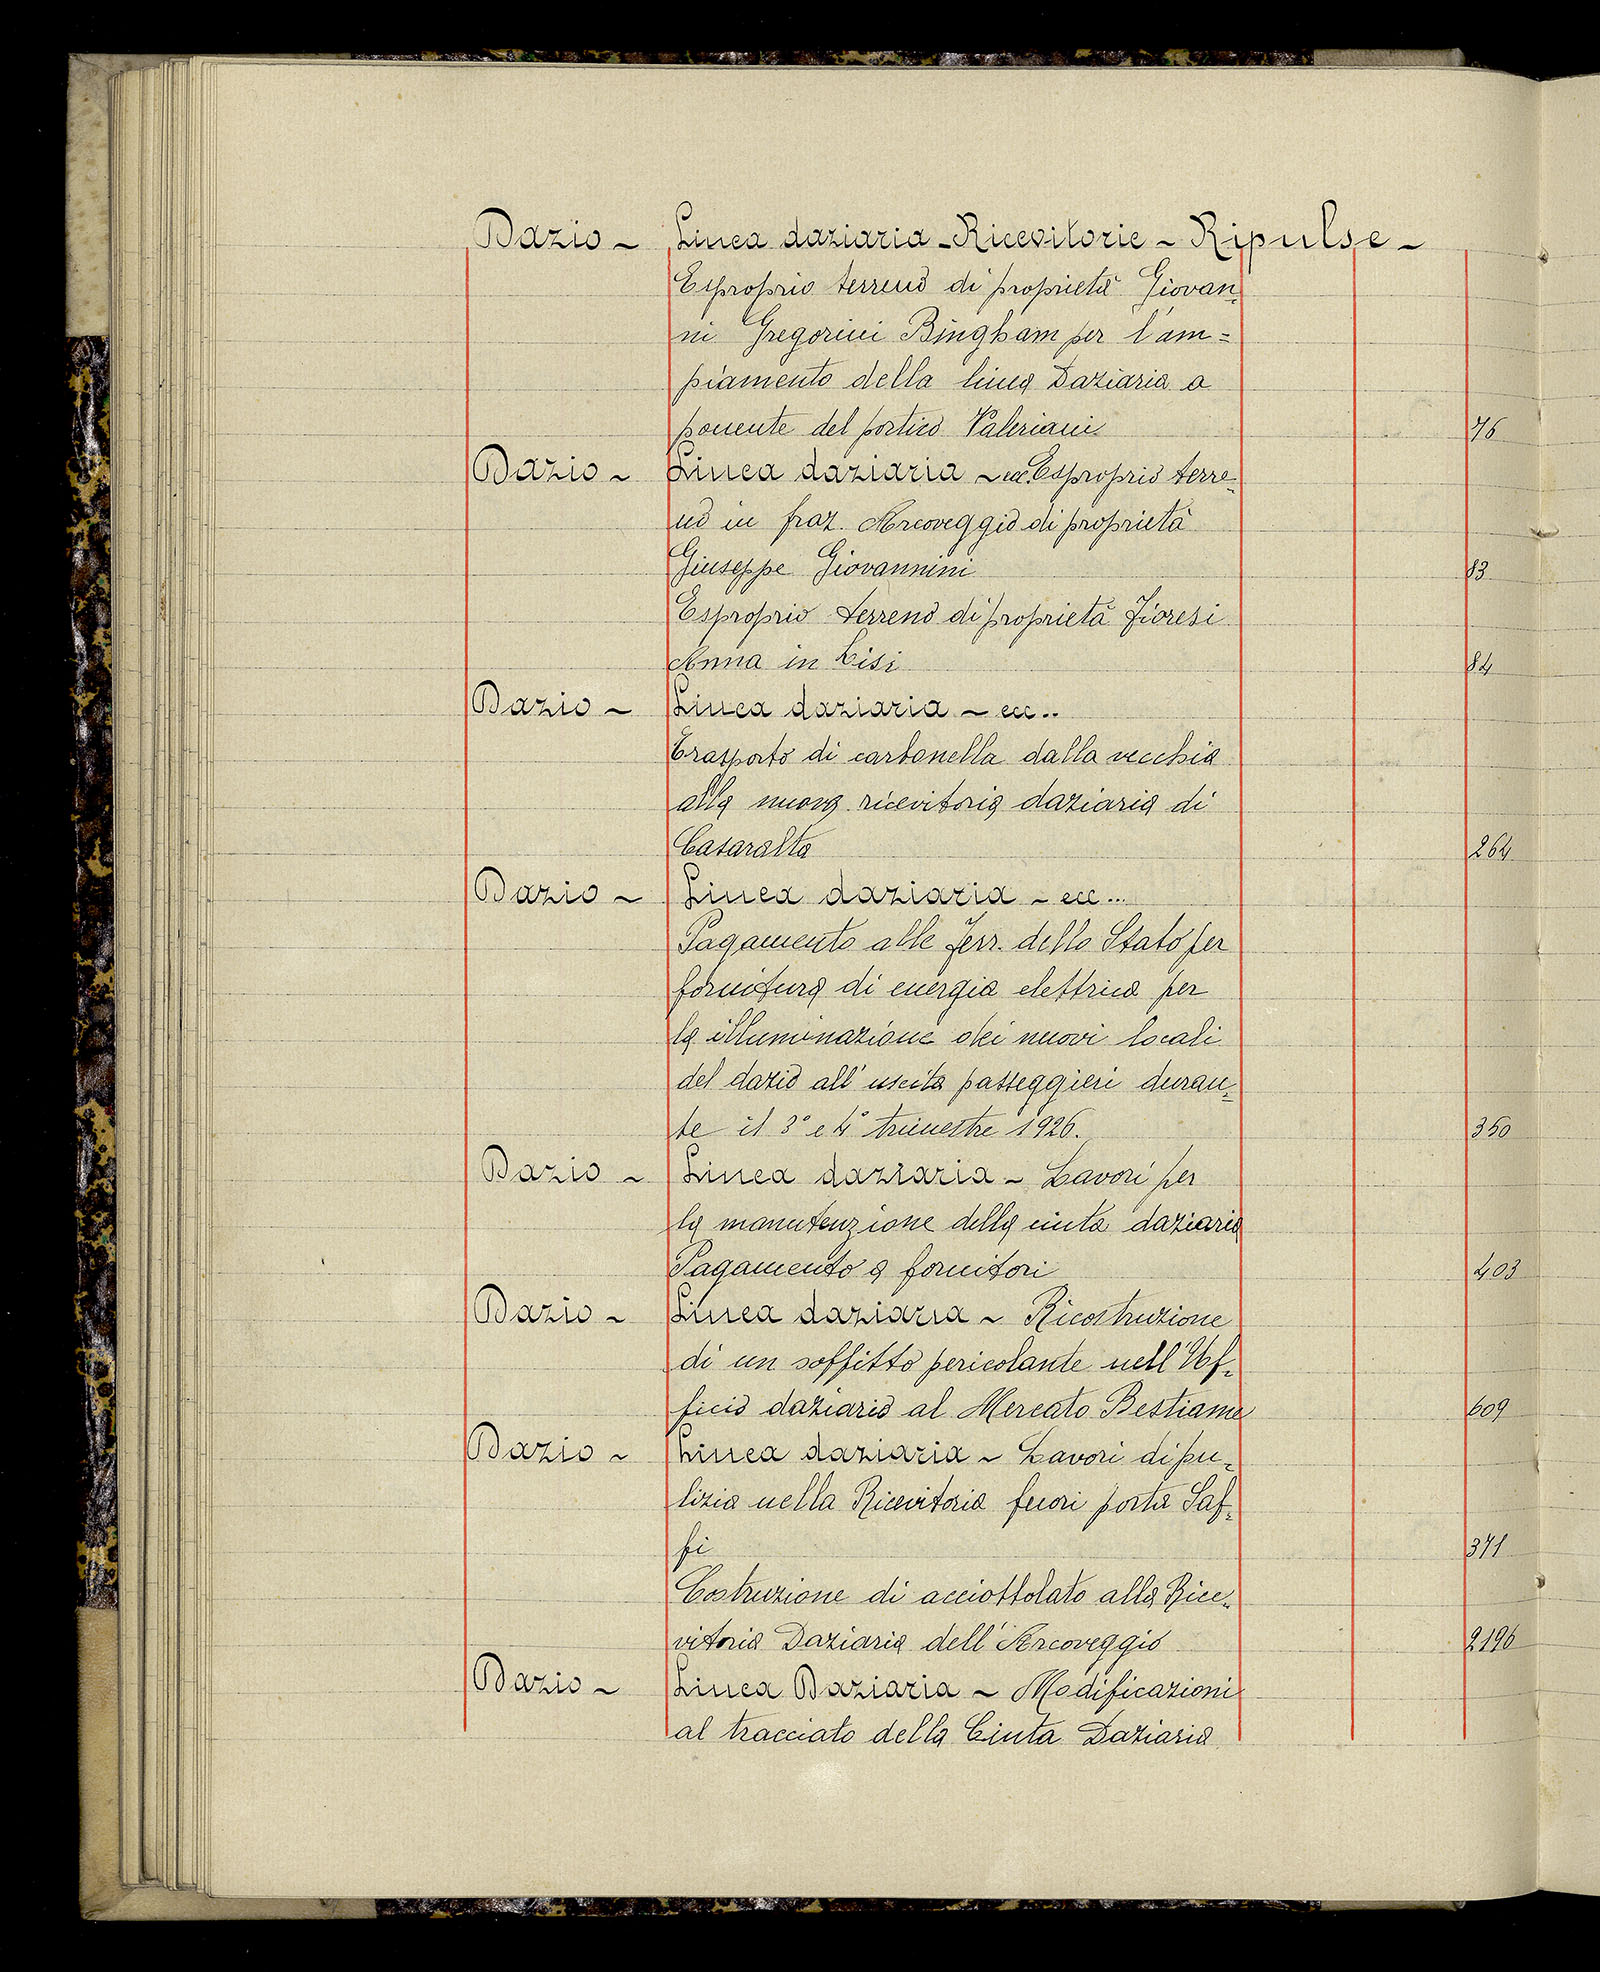 Dazio - Linea daziaria - Ricevitorie - Ripulse -
Esproprio terreno di proprietà Giovan-
ni Gregorini Bingham per l'am=
piamento della linea Daziaria a
ponente del portico Valeriani 76
Dazio - Linea daziaria - ecc. Esproprio terre-
no in fraz. Arcoveggio di proprietà
Giuseppe Giovannini 83
Esproprio terreno di proprietà Fioresi
Anna in Lisi 84
Dazio - Linea daziaria - ecc..
Trasporto di carbonella dalla vecchia
alla nuova ricevitoria daziaria di
Casaralta 264
Dazio - Linea daziaria - ecc...
Pagamento alle Ferr. dello Stato per
fornitura di energia elettrica per
la illuminazione dei nuovi locali
del dazio all'uscita passeggieri duran-
te il 3° e 4° trimestre 1926. 350
Dazio - Linea daziaria - Lavori per
la manutenzione della cinta daziaria
Pagamento a fornitori 403
Dazio - Linea daziaria - Ricostruzione
di un soffitto pericolante nell'Uf-
ficio daziario al Mercato Bestiame 609
Dazio - Linea daziaria - Lavori di pu-
lizia nella Ricevitoria fuori porta Saf-
fi 371
Costruzione di acciottolato alla Rice-
vitoria Daziaria dell'Arcoveggio 2196
Dazio - Linea Daziaria - Modificazioni
al tracciato della Cinta Daziaria